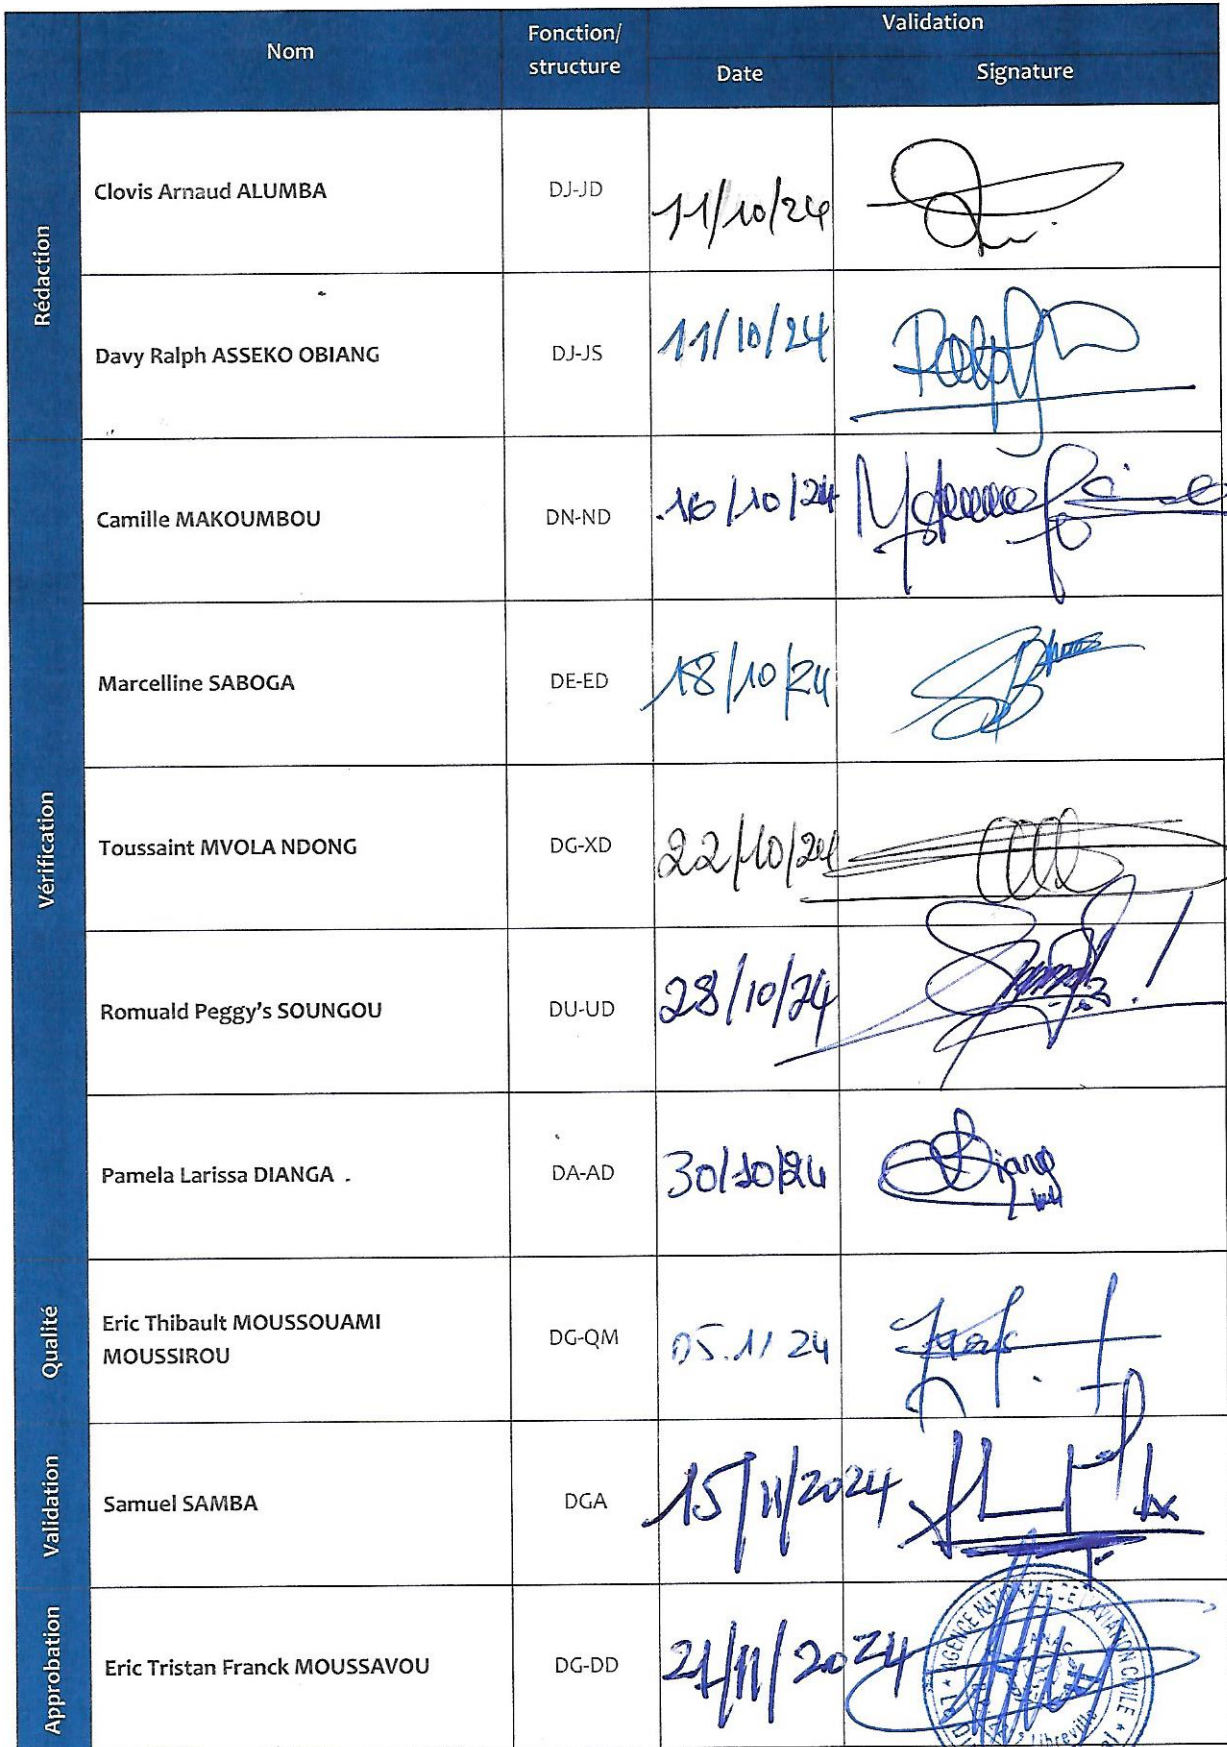 Nom
Fonction/
structure
Validation
Date
Signature
Rédaction
Clovis Arnaud ALUMBA
DJ-JD
11/10/24
Davy Ralph ASSEKO OBIANG
DJ-JS
11/10/24
Vérification
Camille MAKOUMBOU
DN-ND
16/10/24
Marcelline SABOGA
DE-ED
18/10/24
Toussaint MVOLA NDONG
DG-XD
22/10/24
Romuald Peggy's SOUNGOU
DU-UD
28/10/24
Pamela Larissa DIANGA .
DA-AD
30/10/24
Qualité
Eric Thibault MOUSSOUAMI
MOUSSIROU
DG-QM
05.11 24
Validation
Samuel SAMBA
DGA
15/11/2024
Approbation
Eric Tristan Franck MOUSSAVOU
DG-DD
21/11/2024
AGENCE NATIONALE DE L'AVIATION CIVILE
ANAC
Libreville